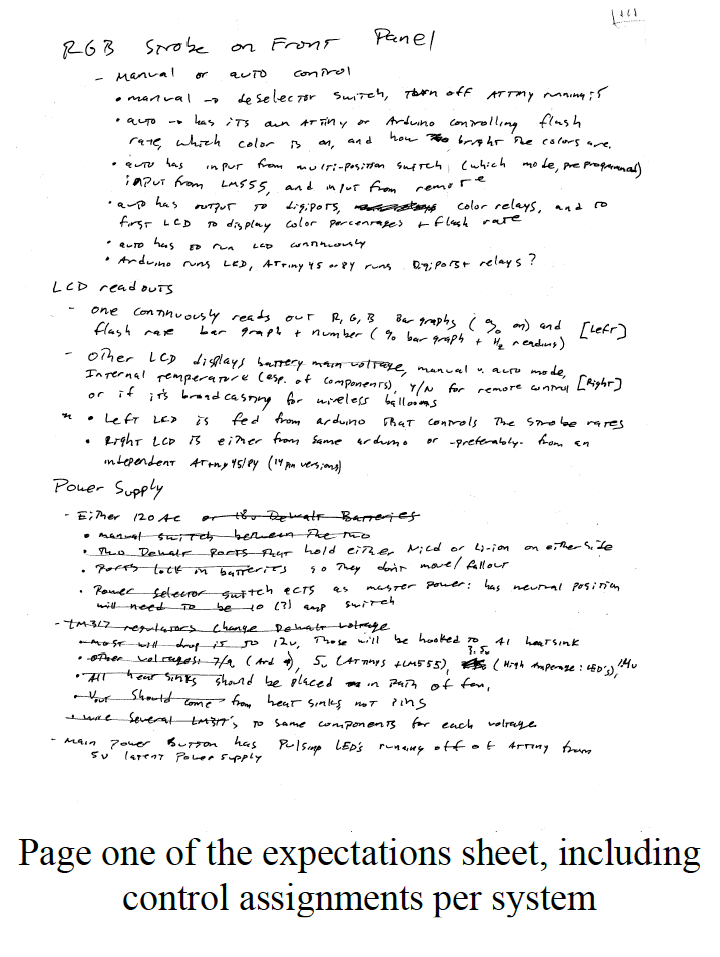 RGB Strobe on Front Panel
- Manual or auto control
• manual → deselector switch, turn off ATTiny running it
• auto → has its own ATtiny or Arduino controlling flash
rate, which color is on, and how bright the colors are.
• auto has input from multi-position switch (which mode, preprogrammed)
input from LM555, and input from remote
• auto has output to digipots, color relays, and to
first LCD to display color percentages + flash rate
• auto has to run LCD continuously
• Arduino runs LED, ATtiny 45 or 84 runs Digipots + relays?
LCD readouts
- one continuously reads out R, G, B Bar graphs (% on) and [Left]
flash rate bar graph + number (% bar graph + Hz reading)
- other LCD displays battery main voltage, manual v. auto mode,
Internal temperature (esp. of components), Y/N for remote control [Right]
or if its broadcasting for wireless ballooms
• Left LCD is fed from arduino that controls the strobe rates
• Right LCD is either from same arduino or -preferably- from an
independent ATtiny 45/84 (14 pin versions)
Power Supply
- Either 120 AC or 18v Dewalt Batteries
• manual switch between the two
• Two Dewalt ports that hold either Nicd or Li-ion on either side
• Ports lock in batteries so they don't move/fallout
• Power selector switch acts as master power: has neutral position
will need to be 10 (?) amp switch
- LM317 regulators change Dewalt voltage
• most will drop is to 12v, Those will be hooked to Al heatsink
• other voltages: 7/9 (Ard), 5v (ATtinys + LM555), 3.5v (High Amperage: LED's), 14v
• All heat sinks should be placed in path of fan,
• Vout should come from heat sinks not pins
• wire several LM317's to same components for each voltage
- Main power Button has Pulsing LED's running off of ATtiny from
5v latent power supply
Page one of the expectations sheet, including
control assignments per system